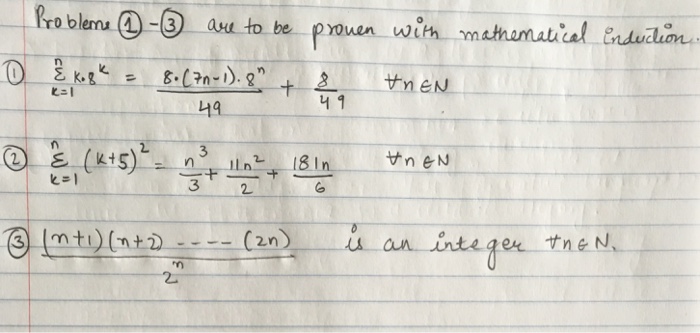 Problems ① - ③ are to be proven with mathematical induction.
① n Σ k=1 k·8^k = 8·(7n-1)·8^n / 49 + 8/49 ∀n∈N
② n Σ k=1 (k+5)^2 = n^3/3 + 11n^2/2 + 181n/6 ∀n∈N
③ (n+1)(n+2) ----- (2n) / 2^n is an integer ∀n∈N.